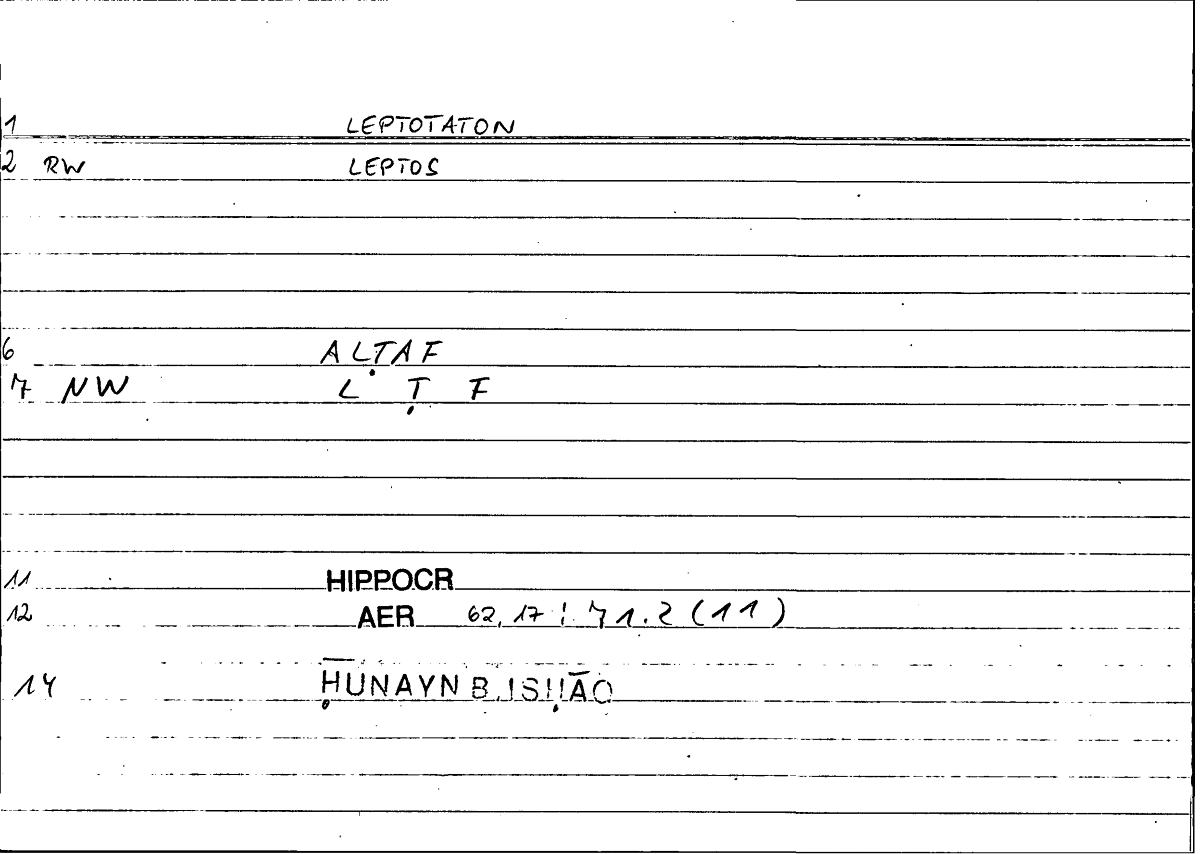 1 LEPTOTATON
2 RW LEPTOS
6 ALṬAF
7 NW L Ṭ F
11 HIPPOCR
12 AER 62,17 ; 71.2 (11)
14 ḤUNAYN B.ISḤĀQ